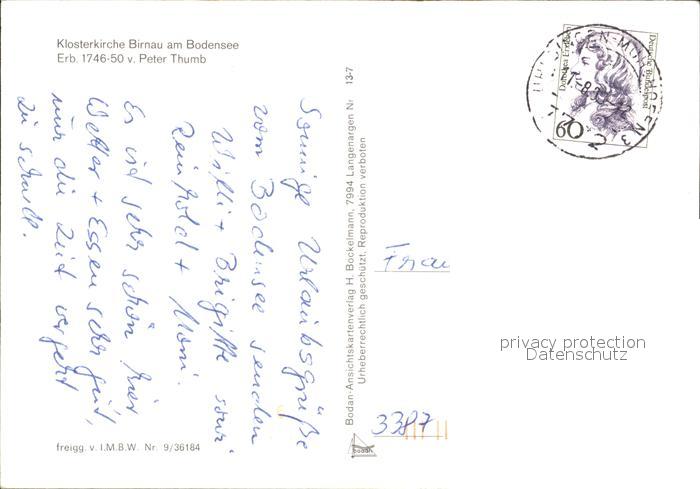 Klosterkirche Birnau am Bodensee
Erb. 1746-50 v. Peter Thumb
Sonnige Urlaubsgrüße
vom Bodensee senden
Willi + Brigitte sowie
Reinhold + Moni.
Es ist sehr schön hier
Wetter + Essen sehr gut,
nur die Zeit vergeht
zu schnell.
freigg. v. I.M.B.W. Nr. 9/36184
Bodan-Ansichtskartenverlag H. Bockelmann, 7994 Langenargen Nr 13-7
Urheberrechtlich geschützt. Reproduktion verboten
bodan
Deutsche Bundespost
Dorothea Erxleben
60
Frau
privacy protection
Datenschutz
3387